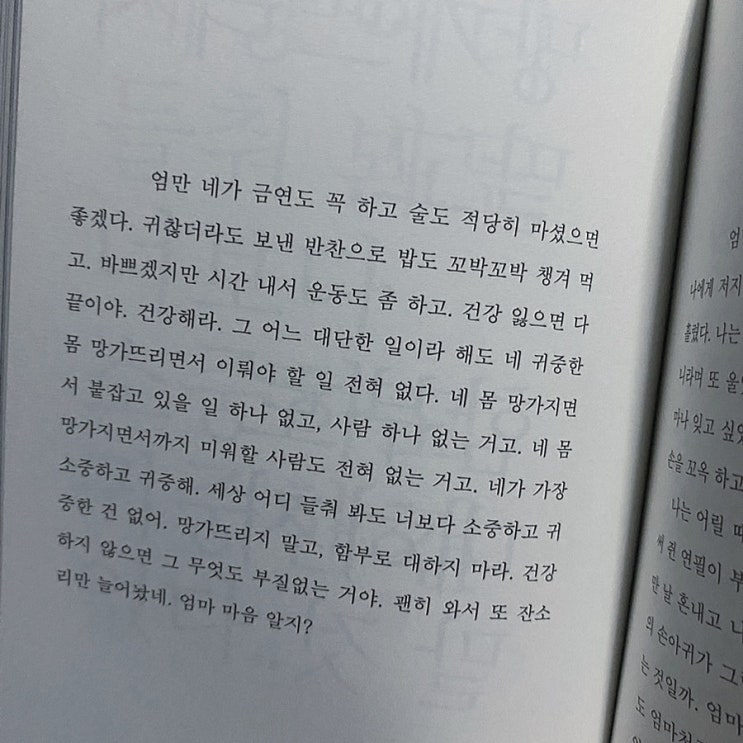 엄만 네가 금연도 꼭 하고 술도 적당히 마셨으면
좋겠다. 귀찮더라도 보낸 반찬으로 밥도 꼬박꼬박 챙겨 먹
고. 바쁘겠지만 시간 내서 운동도 좀 하고. 건강 잃으면 다
끝이야. 건강해라. 그 어느 대단한 일이라 해도 네 귀중한
몸 망가뜨리면서 이뤄야 할 일 전혀 없다. 네 몸 망가지면
서 붙잡고 있을 일 하나 없고, 사람 하나 없는 거고. 네 몸
망가지면서까지 미워할 사람도 전혀 없는 거고. 네가 가장
소중하고 귀중해. 세상 어디 들춰 봐도 너보다 소중하고 귀
중한 건 없어. 망가뜨리지 말고, 함부로 대하지 마라. 건강
하지 않으면 그 무엇도 부질없는 거야. 괜히 와서 또 잔소
리만 늘어놨네. 엄마 마음 알지?
엄
나에게 저지
흘렸다. 나는
니라며 또 울
마나 잊고 싶었
손을 꼬옥 하고
나는 어릴 때
써 쥔 연필이 부
만 날 혼내고 나
의 손아귀가 그
는 것일까. 엄마
도 엄마처